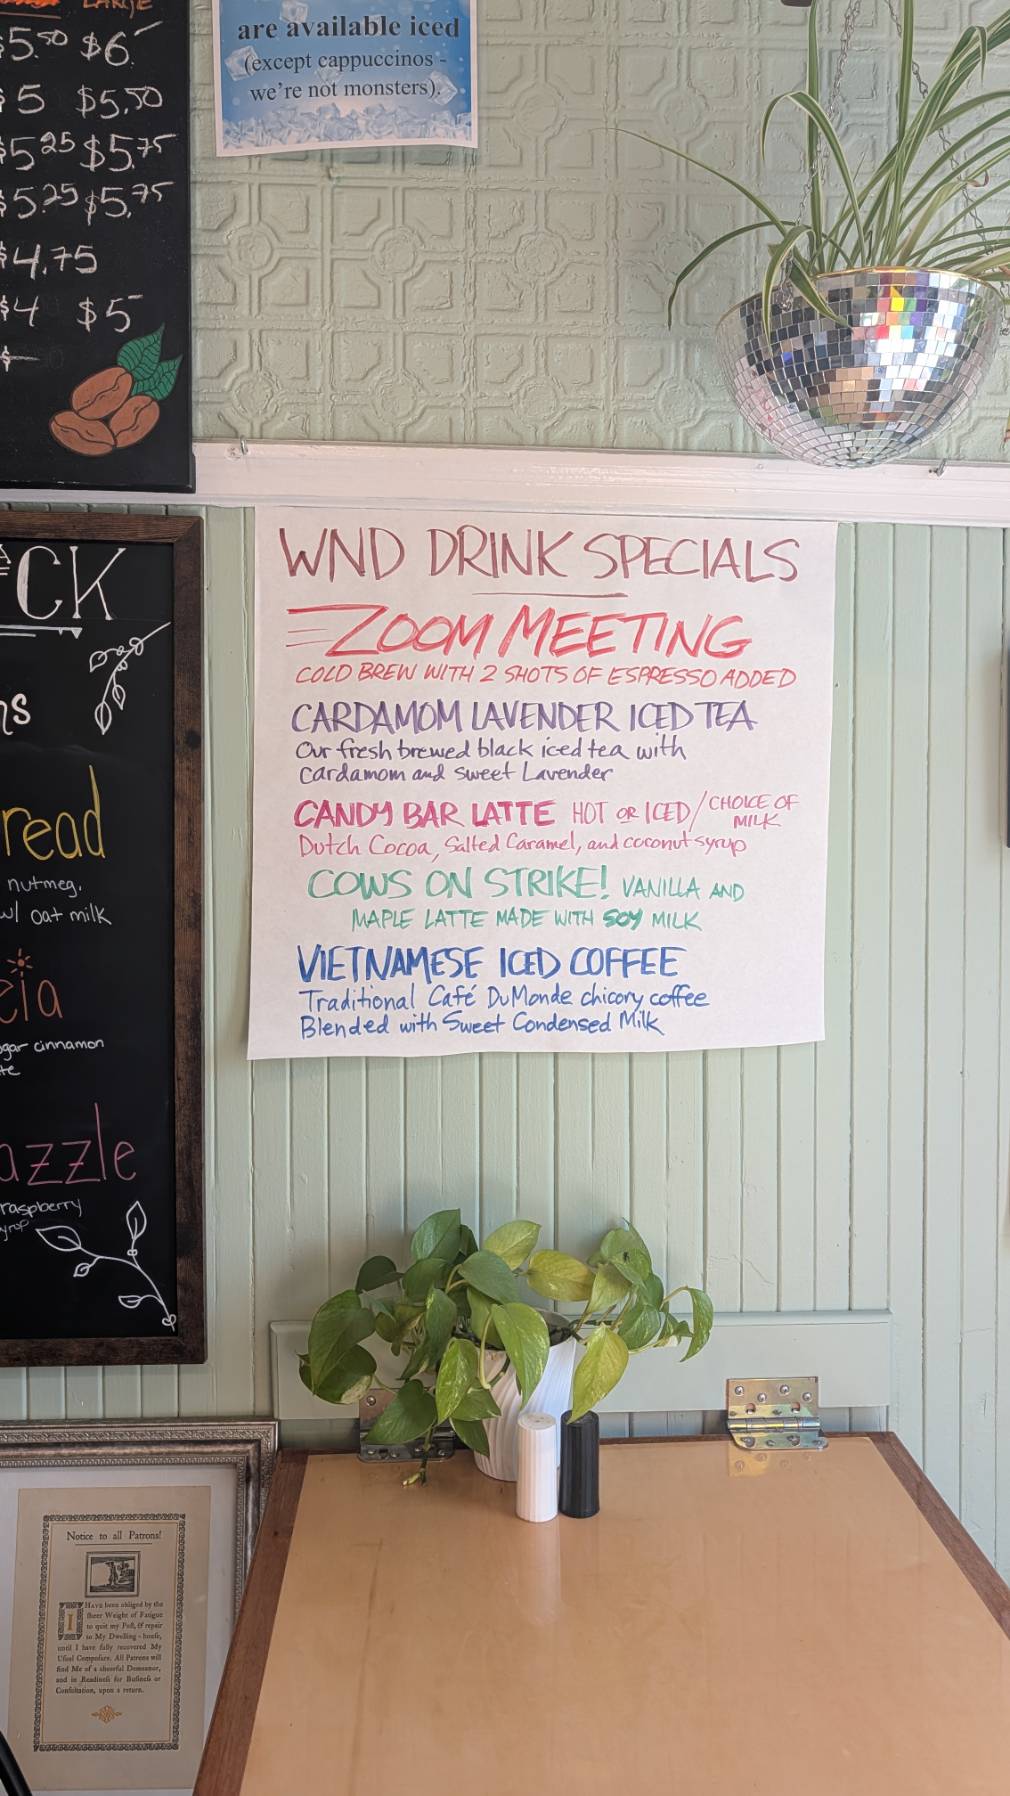 LARGE
$5.50 $6.-
$5 $5.50
$5.25 $5.75
$5.25 $5.75
$4.75
$4 $5-
$
are available iced
(except cappuccinos -
we're not monsters).
WND DRINK SPECIALS
ZOOM MEETING
COLD BREW WITH 2 SHOTS OF ESPRESSO ADDED
CARDAMOM LAVENDER ICED TEA
Our fresh brewed black iced tea with
Cardamom and sweet Lavender
CANDY BAR LATTE HOT OR ICED/CHOICE OF
MILK
Dutch Cocoa, Salted Caramel, and coconut syrup
COWS ON STRIKE! VANILLA AND
MAPLE LATTE MADE WITH SOY MILK
VIETNAMESE ICED COFFEE
Traditional Café DuMonde chicory coffee
Blended with Sweet Condensed Milk
CK
ns
read
nutmeg,
w/ oat milk
eia
gar cinnamon
te
azzle
raspberry
yrup
Notice to all Patrons!
I HAVE been obliged by the
sheer Weight of Fatigue
to quit my Post, & repair
to My Dwelling-house,
until I have fully recovered My
Usual Composure. All Patrons will
find Me of a cheerful Demeanor,
and in Readiness for Business or
Consultation, upon a return.